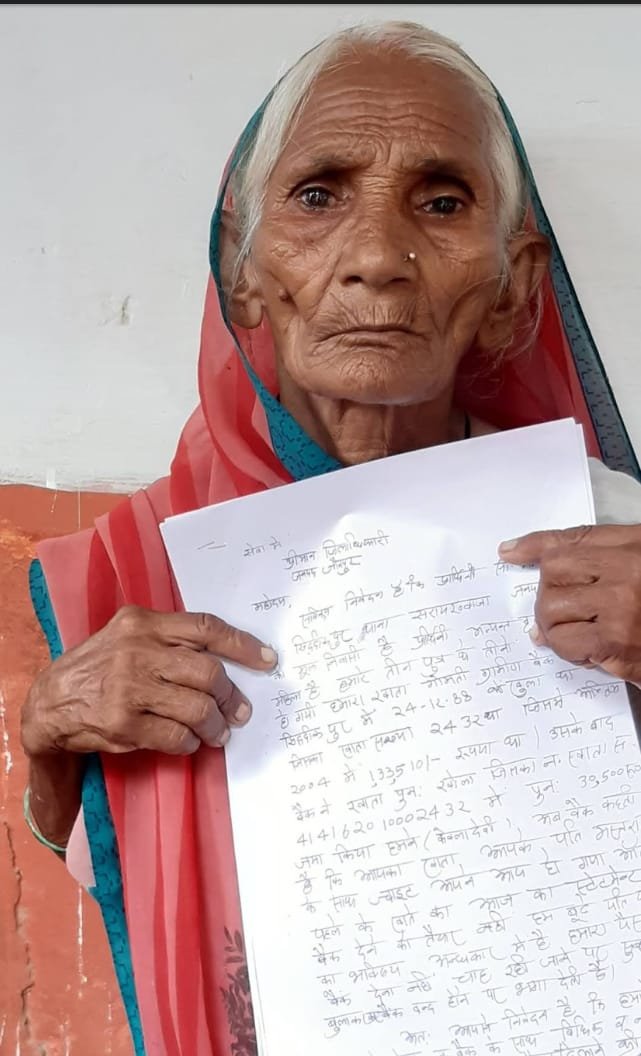 सेवा में
श्रीमान जिलाधिकारी
जनपद जौनपुर
महोदय,
निवेदन है कि प्रार्थिनी
सिद्दीकपुर थाना सरायख्वाजा जनपद
की मूल निवासी है प्रार्थिनी अत्यन्त
महिला है हमारे तीन पुत्र थे तीनो
हो गयी हमारा खाता गोमती ग्रामीण बैंक
सिद्दीकपुर में 24-12-88 को खुला था
जिसका खाता संख्या 2432 था जिसमे
2004 में 133510/- रूपया था। उसके बाद
बैंक ने खाता पुनः खोला जिसका नं. खाता
41416201000 2432 में पुनः 39,500
जमा किया हमने (केवला देवी)। अब बैंक कहती
है कि आपका खाता आपके पति
के साथ ज्वाइट अपने आप हो गया
पहले के खाते का आज का स्टेटमेन्ट
बैंक देने को तैयार नहीं हम बूढ़े पति
का भविष्य अन्धकार में है हमारा पैसा
बैंक देना नहीं चाह रही जाने पर
बुलाकर बैंक बन्द होने पर भगा देती है।
अतः आपसे निवेदन है कि
बैंक के साथ विधिक